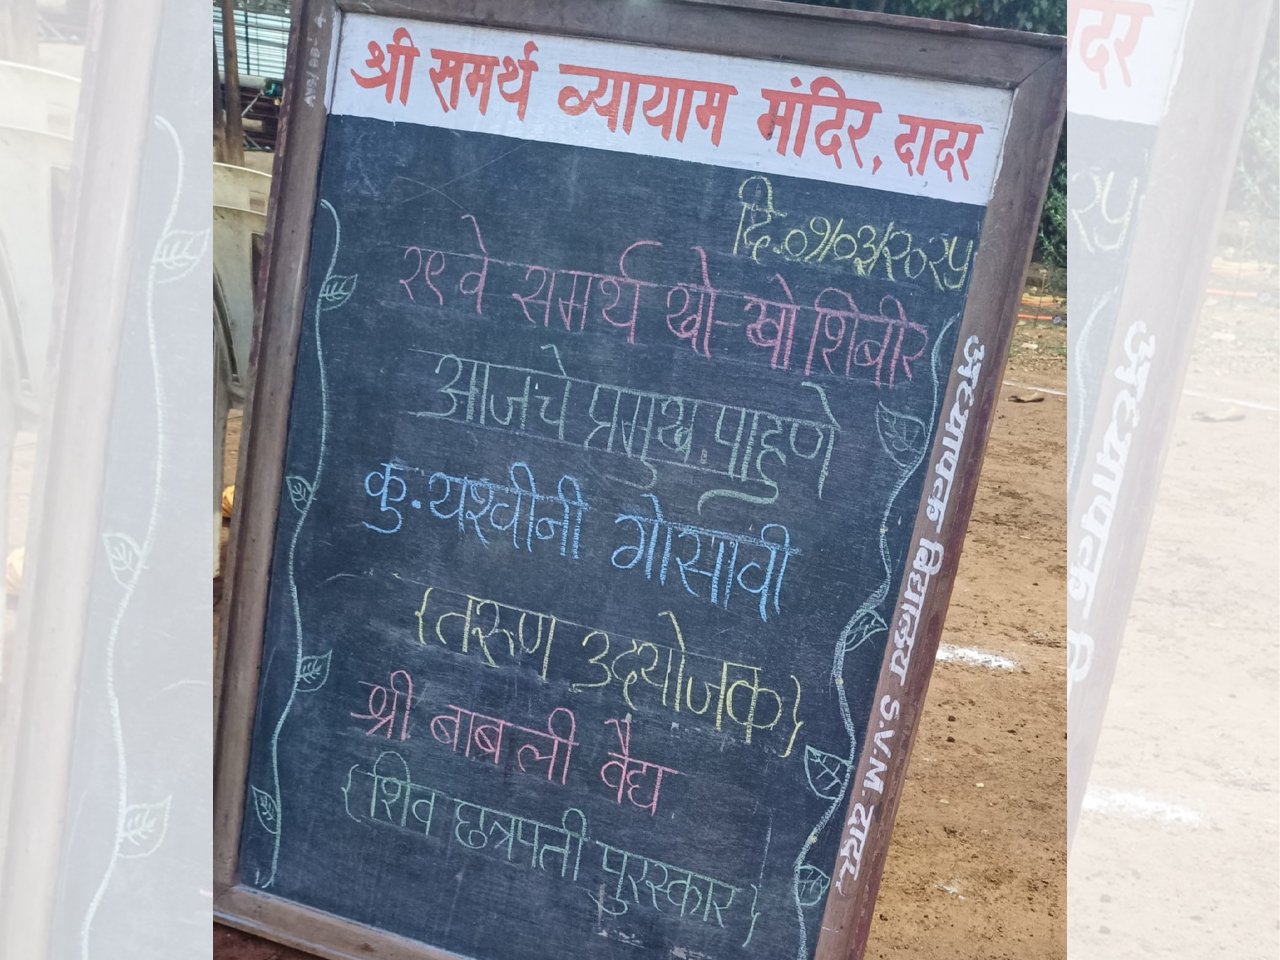 श्री समर्थ व्यायाम मंदिर, दादर
दि.०१/०३/२०२५
२९ वे समर्थ खो-खो शिबीर
आजचे प्रमुख पाहुणे
कु. यश्वीनी गोसावी
{तरूण उद्योजक}
श्री बाबली वैद्य
{शिव छत्रपती पुरस्कार}
अध्यापक विद्यालय S.V.M. दादर